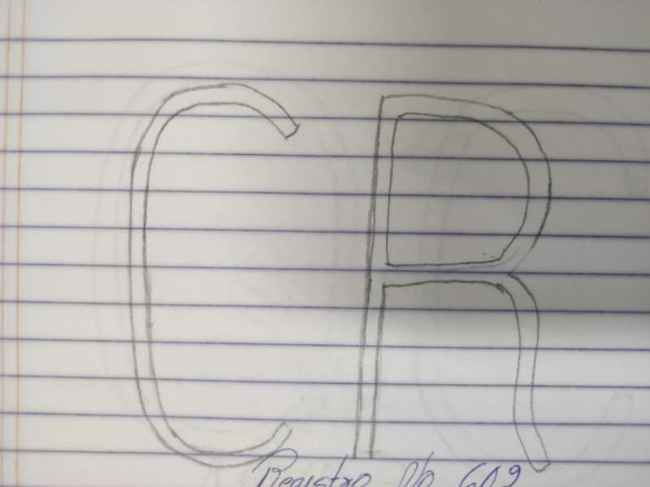 CR
Registro No 609